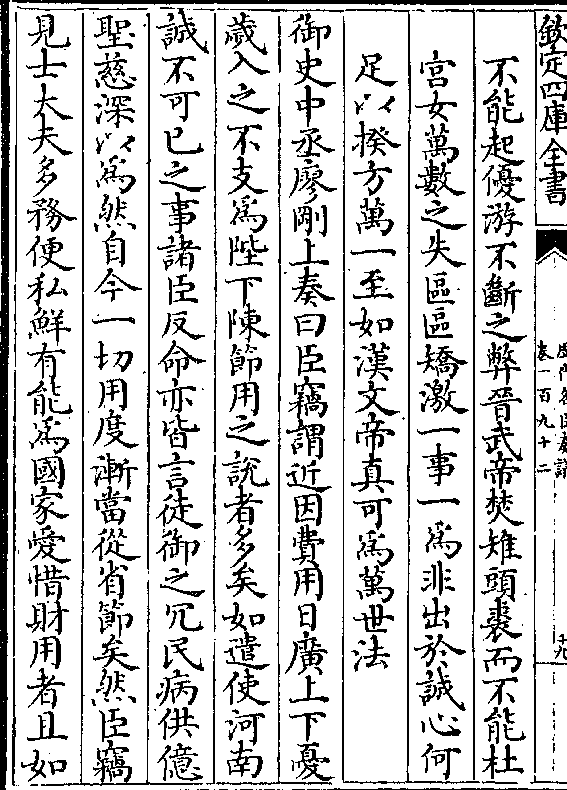 欽定四庫全書
歷代名臣奏議
卷一百九十二
十九
不能起優游不斷之弊晉武帝焚雉頭裘而不能杜
宫女萬數之失區區矯激一事一為非出於誠心何
足以揆方萬一至如漢文帝真可為萬世法
御史中丞廖剛上奏曰臣竊謂近因費用日廣上下憂
歲入之不支為陛下陳節用之說者多矣如遣使河南
誠不可已之事諸臣反命亦皆言徒御之冗民病供億
聖慈深以為然自今一切用度漸當從省節矣然臣竊
見士大夫多務便私鮮有能為國家愛惜財用者且如